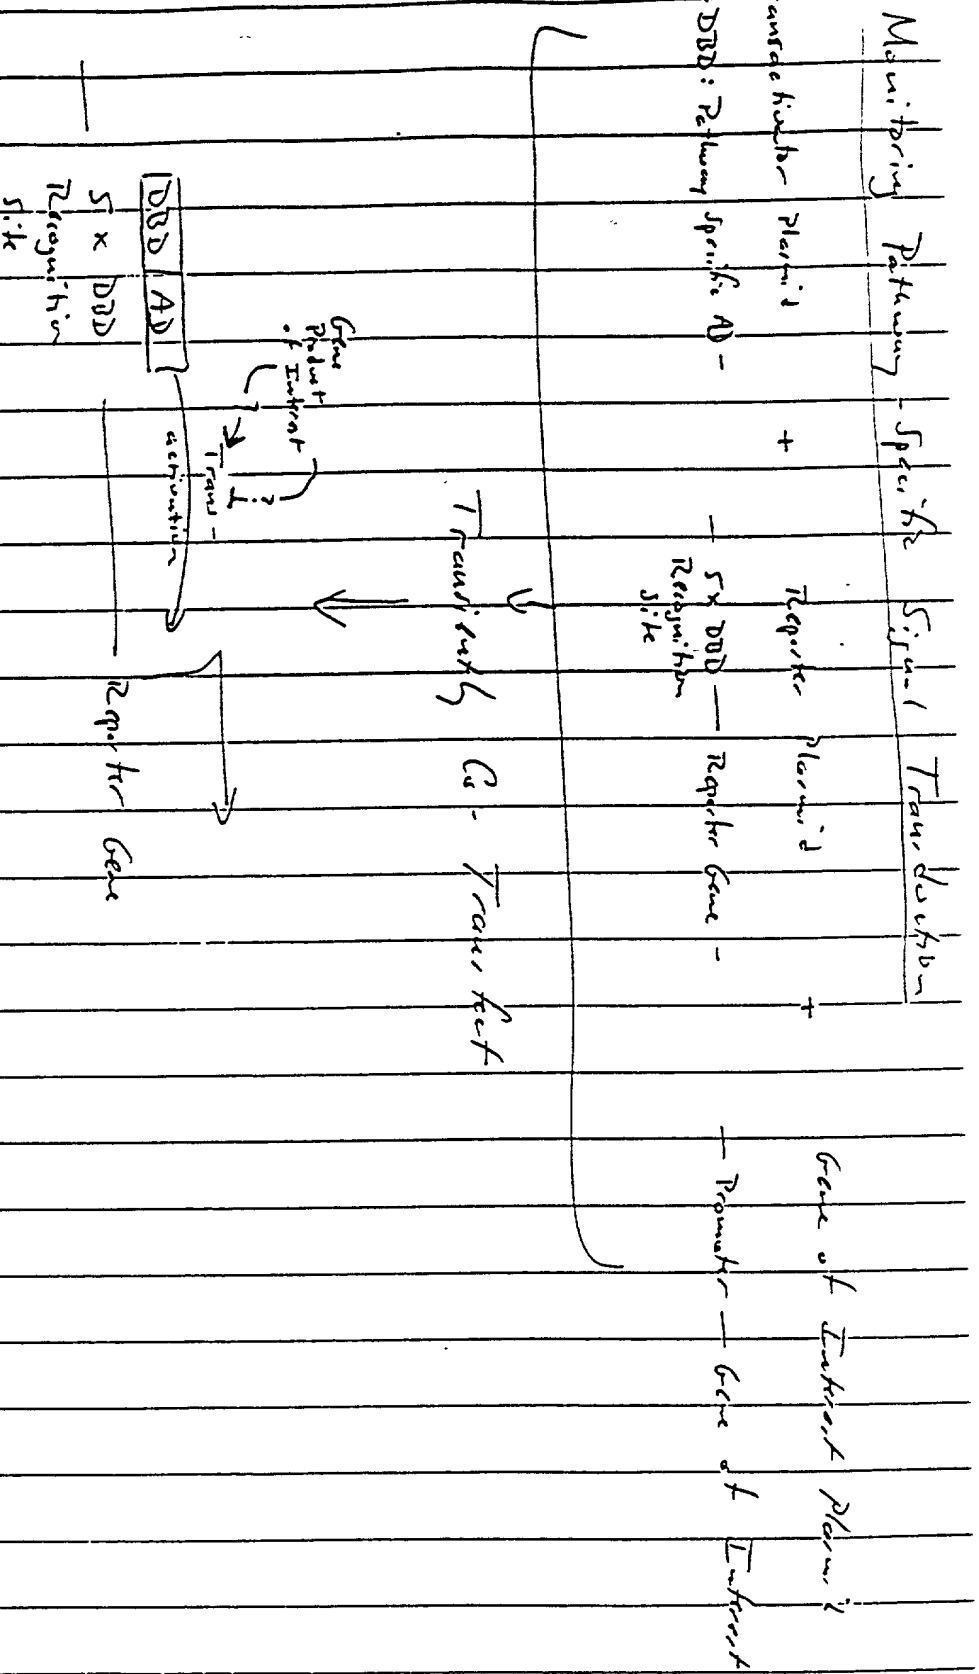 Monitoring Pathway-Specific Signal Transduction
ansactivator Plasmid + Reporter Plasmid + Gene of Interest Plasmid
-DBD: Pathway Specific AD - — 5x DBD — Reporter Gene - — Promoter — Gene of Interest
Recognition
Site
Transiently Co-Transfect
Gene
Product
of Interest
?
Trans-
activation
DBD AD
5x DBD
Recognition
Site
Reporter Gene